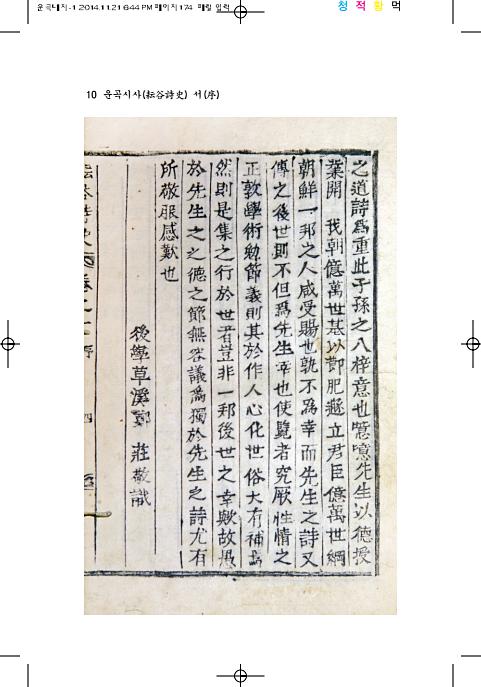 운곡대지-1 2014.11.21 6:44 PM 페이지174 매킬 입력
청 적 황 먹
10 운곡시사(耘谷詩史) 서(序)
之道詩爲重此子孫之入梓意也噫噫先生以德授
業開 我朝億萬世基以鄭肥遯立君臣億萬世綱
朝鮮一邦之人咸受賜也孰不爲幸而先生之詩又
傳之後世則不但爲先生幸也使覽者究厥性情之
正敦學術勉節義則其於作人心化世俗大有補焉
然則是集之行於世者豈非一邦後世之幸歟故愚
於先生之之德之節無容議爲獨於先生之詩尤有
所敬服感歎也
後學草溪鄭 莊敬識
四